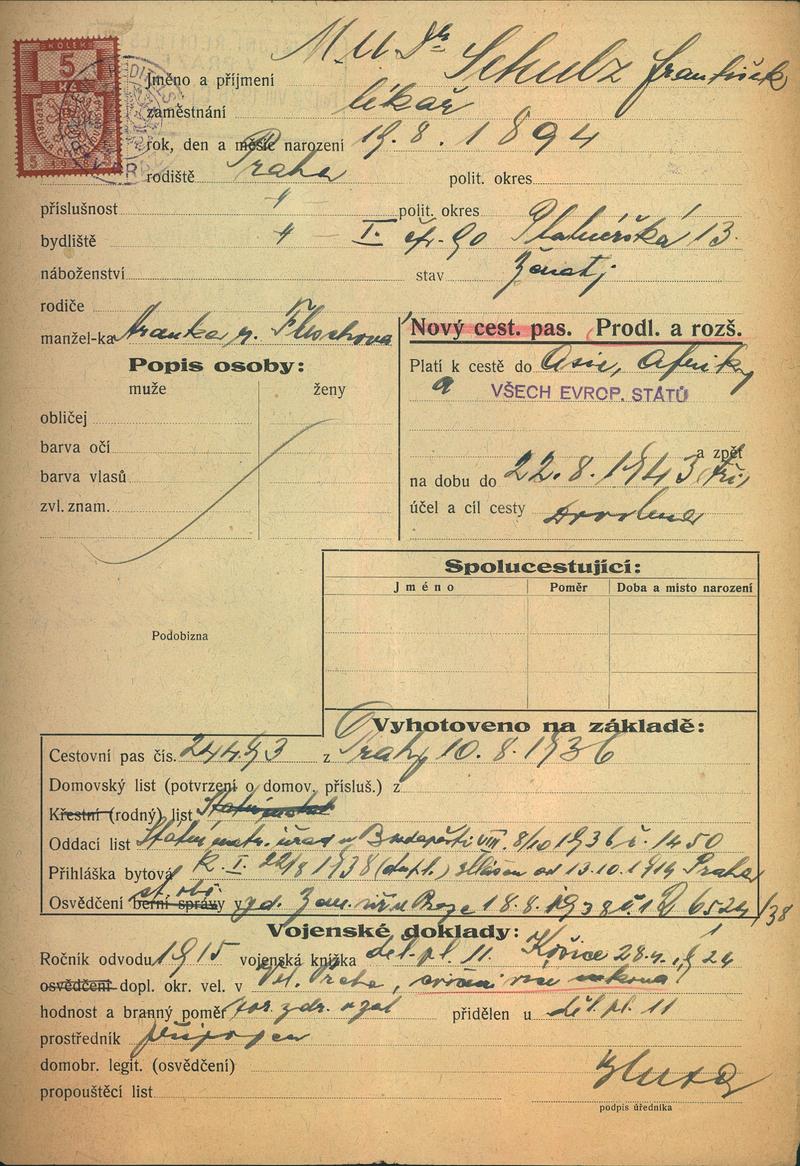 KOLEK
5
Kč
MUDr Schulz František
Jméno a příjmení
zaměstnání lékař
rok, den a měsíc narození 19. 8. 1894
rodiště Praha polit. okres
příslušnost " polit. okres
bydliště " I. čp. 90 Platnéřská 13.
náboženství stav ženatý
rodiče
manžel-ka Aranka r.
Nový cest. pas. Prodl. a rozš.
Popis osoby:
muže ženy
obličej
barva očí
barva vlasů
zvl. znam.
Platí k cestě do Asie, Afriky
a VŠECH EVROP. STÁTŮ
a zpět
na dobu do 22. 8. 1943
účel a cíl cesty dovolená
Spolucestující:
Jméno Poměr Doba a místo narození
Podobizna
Vyhotoveno na základě:
Cestovní pas čís. 24493 z Prahy 10. 8. 1936
Domovský list (potvrzení o domov. přísluš.) z
Křestní (rodný) list
Oddací list Státní matr. úřad v Budapešti VIII. 8/10 1936 č. 1450
Přihláška bytová k. I. 22/8 1938 (dupl.) hlášen od 13.10.1919 Praha
Osvědčení berní správy 18. 8. 1938 6524/38
Vojenské doklady:
Ročník odvodu 1915 vojenská knížka děl. pl. 11. Košice 28.4.1924
osvědčení dopl. okr. vel. v Praha, cvičení
hodnost a branný poměr por. zdr. v zál. přidělen u děl. pl. 11
prostředník připojen
domobr. legit. (osvědčení)
propouštěcí list
podpis úředníka